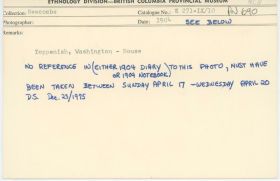 ETHNOLOGY DIVISION—BRITISH COLUMBIA PROVINCIAL MUSEUM
Collection: Newcombe Catalogue No.: E 271-IX/10 PN 690
Photographer: Date: 1904 SEE BELOW
Remarks:
Toppenish, Washington - House
NO REFERENCE IN (EITHER 1904 DIARY OR 1904 NOTEBOOK) TO THIS PHOTO, MUST HAVE
BEEN TAKEN BETWEEN SUNDAY APRIL 17 - WEDNESDAY APRIL 20
D.S. Dec. 23/1975